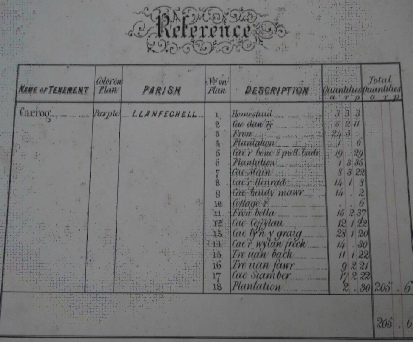 Reference
NAME OF TENEMENT Colored Plan PARISH No on Plan DESCRIPTION Quantities Total Quantities
a r p a r p
Carrog Purple 1. LLANFECHELL 1 Homestead 3 3 3
2 Cae dan Ty 5 2 11
3 Fron 24 3
4 Plantation 1 6
5 Cae'r 19 . 29
6 Plantation 1 3 35
7 Cae Main 8 3 22
8 14 1 8
9 Cae beudy mawr 14 . 2
10 Cottage & . 6
11 Fron bella 15 2 37
12 Cae 12 1 22
13 Cae graig 28 1 20
14 Cae'r wylan 14 . 30
15 bach 11 1 22
16 fawr 9 2 21
17 Cae Siamber 2 22
18 Plantation 2 . 30 205 . 6
205 . 6